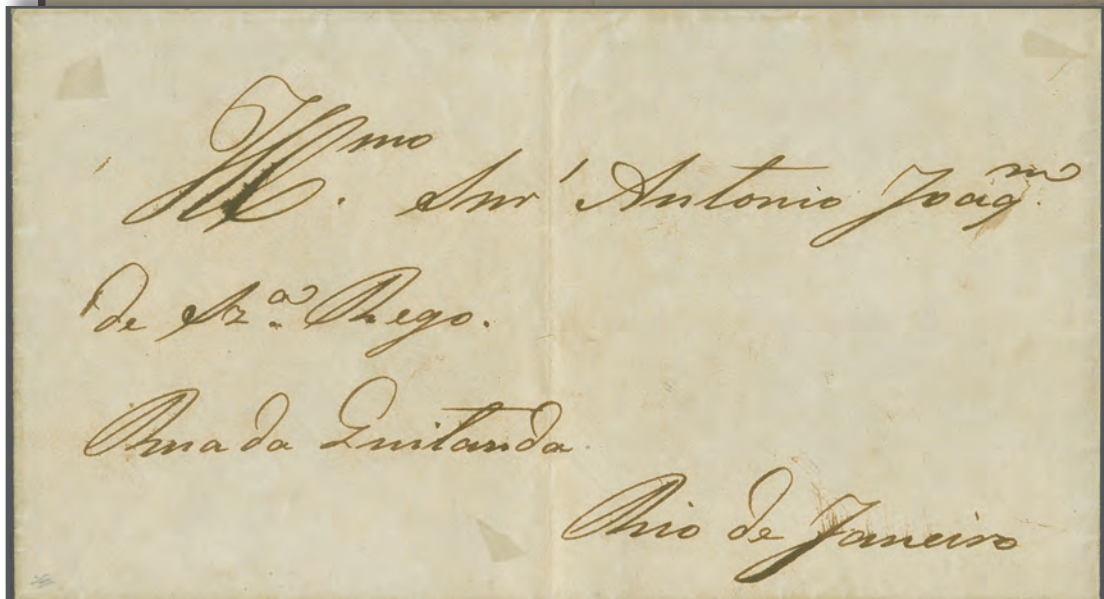 Illmo. Snr Antonio Joaqm.
de Sza. Rego.
Rua da Quitanda.
Rio de Janeiro